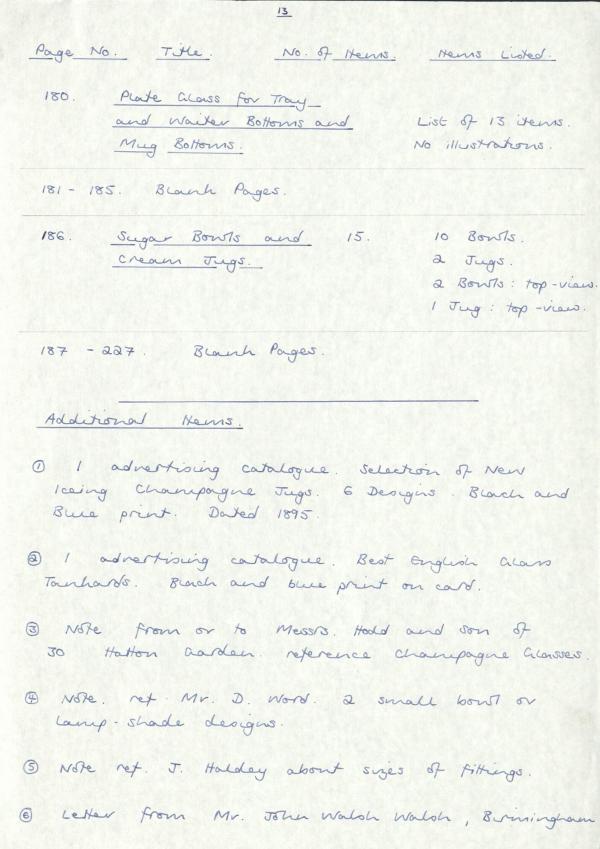 13
Page No. Title. No. of Items. Items Listed.
180. Plate Glass for Tray
and Waiter Bottoms and List of 13 items.
Mug Bottoms. No illustrations.
181 - 185. Blank Pages.
186. Sugar Bowls and 15. 10 Bowls.
Cream Jugs. 2 Jugs.
2 Bowls : top-view.
1 Jug : top-view.
187 - 227. Blank Pages.
Additional Items.
① 1 advertising catalogue. Selection of New
Iceing Champagne Jugs. 6 Designs. Black and
Blue print. Dated 1895.
② 1 advertising catalogue. Best English Glass
Tankards. Black and blue print on card.
③ Note from or to Messrs. Hodd and Son of
30 Hatton Garden. reference Champagne Glasses.
④ Note. ref. Mr. D. Word. 2 small bowl or
lamp-shade designs.
⑤ Note ref. J. Haldey about sizes of fittings.
⑥ Letter from Mr. John Walsh Walsh, Birmingham